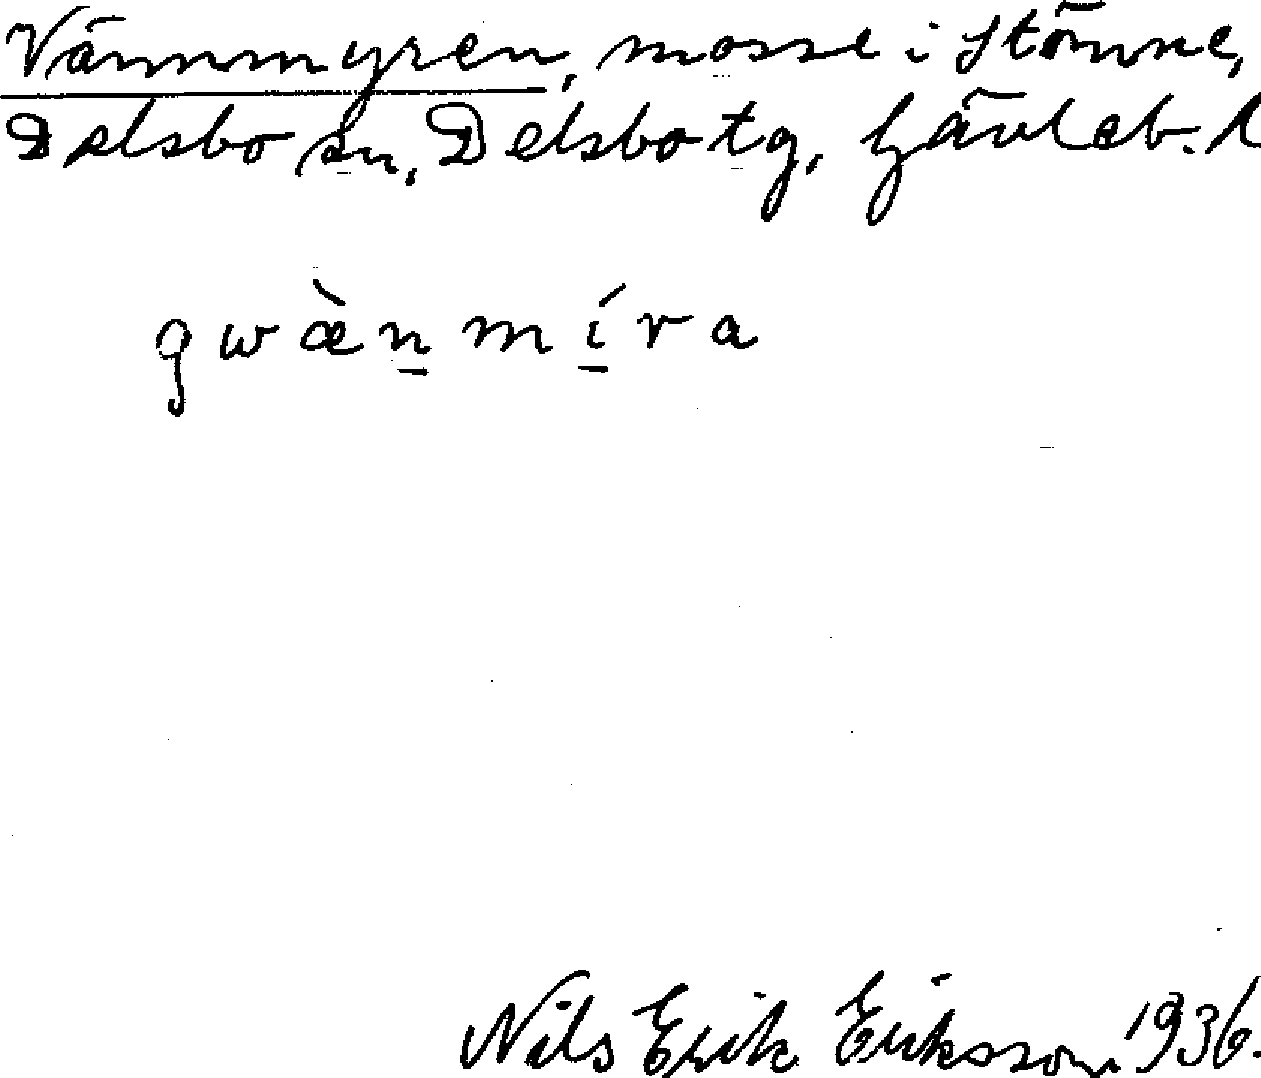 Vännmyren, mosse i Stömne,
Delsbo sn, Delsbo tg, Gävleb. l
gwæ̀n̲mí̲ra
Nils Erik Eriksson 1936.